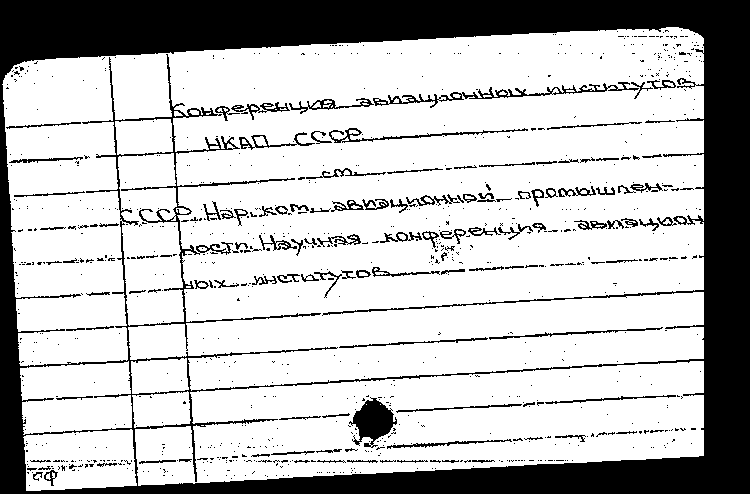 Конференция авиационных институтов
НКАП СССР
см.
СССР. Нар. ком. авиационной промышлен-
ности. Научная конференция авиацион
ных институтов
сф